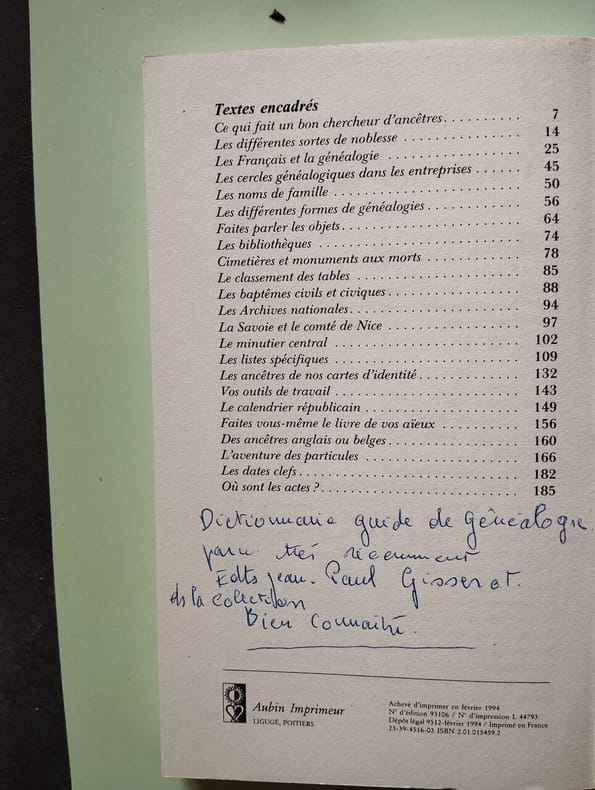 Textes encadrés
Ce qui fait un bon chercheur d'ancêtres.......... 7
Les différentes sortes de noblesse ............... 14
Les Français et la généalogie ................. 25
Les cercles généalogiques dans les entreprises ...... 45
Les noms de famille ........................ 50
Les différentes formes de généalogies............. 56
Faites parler les objets........................ 64
Les bibliothèques .......................... 74
Cimetières et monuments aux morts ............. 78
Le classement des tables ..................... 85
Les baptêmes civils et civiques.................. 88
Les Archives nationales....................... 94
La Savoie et le comté de Nice .................. 97
Le minutier central ......................... 102
Les listes spécifiques ........................ 109
Les ancêtres de nos cartes d'identité.............. 132
Vos outils de travail ........................ 143
Le calendrier républicain ..................... 149
Faites vous-même le livre de vos aïeux ........... 156
Des ancêtres anglais ou belges.................. 160
L'aventure des particules ..................... 166
Les dates clefs............................. 182
Où sont les actes ?.......................... 185
Dictionnaire guide de Généalogie
paru très récemment
Edts Jean-Paul Gisserot.
ds la collection
Bien Connaître.
Aubin Imprimeur
LIGUGÉ, POITIERS
Achevé d'imprimer en février 1994
N° d'édition 93106 / N° d'impression L 44793
Dépôt légal 9512-février 1994 / Imprimé en France
23-39-4516-03 ISBN 2.01.015459.2